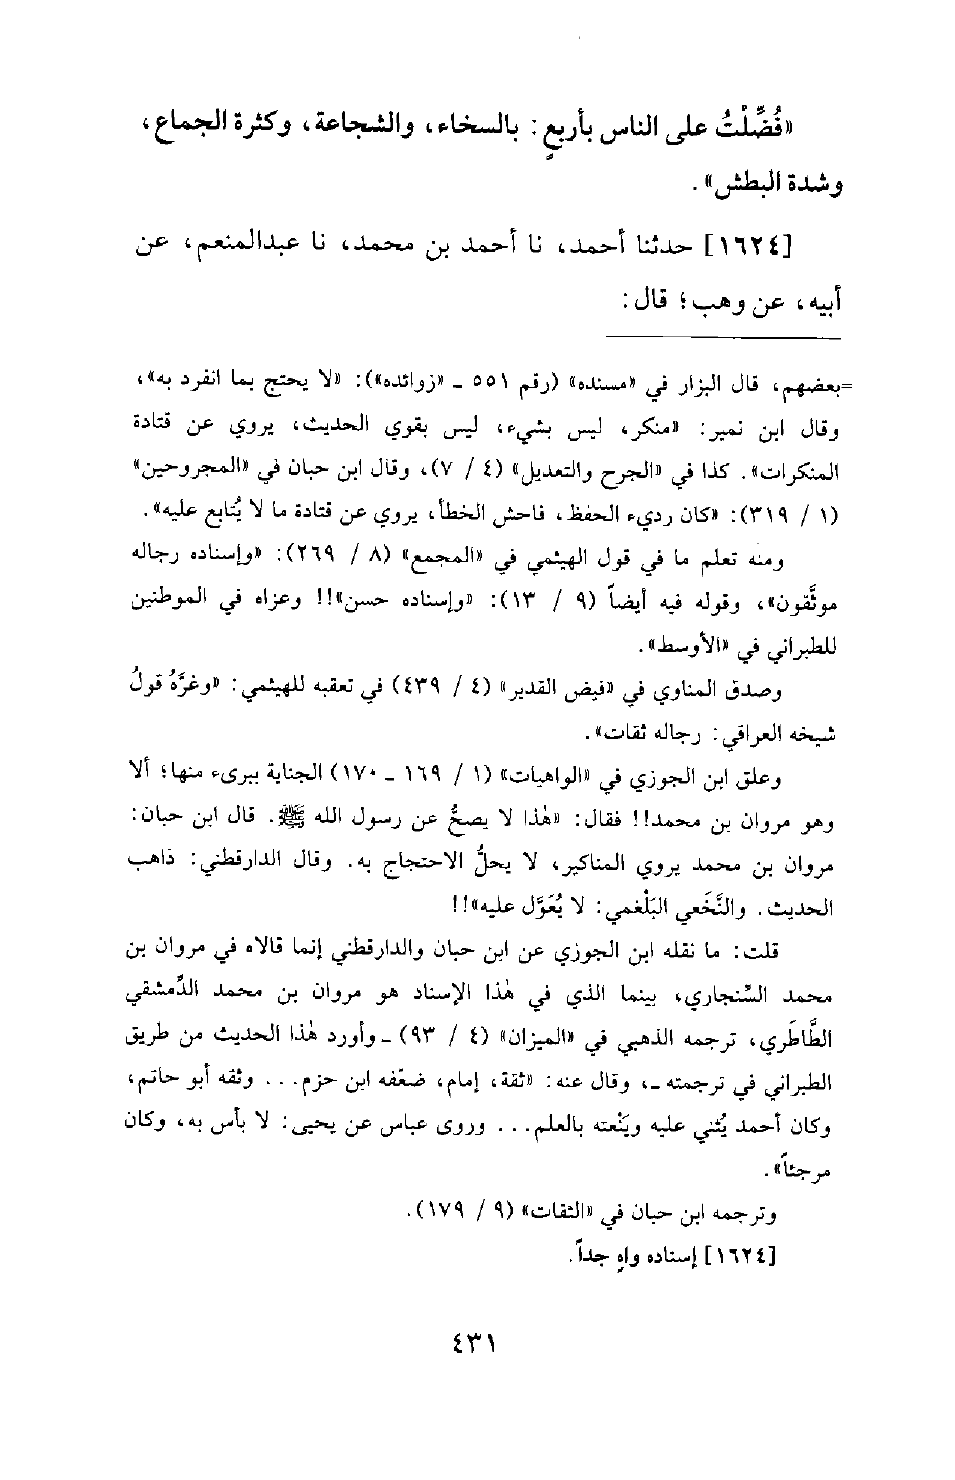 «فُضِّلْتُ على الناس بأربعٍ: بالسخاء، والشجاعة، وكثرة الجماع،
وشدة البطش».
[١٦٢٤] حدثنا أحمد، نا أحمد بن محمد، نا عبدالمنعم، عن
أبيه، عن وهب؛ قال:
=بعضهم، قال البزار في «مسنده» (رقم ٥٥١ ـ «زوائده»): «لا يحتج بما انفرد به»،
وقال ابن نمير: «منكر، ليس بشيء، ليس بقوي الحديث، يروي عن قتادة
المنكرات». كذا في «الجرح والتعديل» (٤ / ٧)، وقال ابن حبان في «المجروحين»
(١ / ٣١٩): «كان رديء الحفظ، فاحش الخطأ، يروي عن قتادة ما لا يُتابع عليه».
ومنه تعلم ما في قول الهيثمي في «المجمع» (٨ / ٢٦٩): «وإسناده رجاله
موثَّقون»، وقوله فيه أيضاً (٩ / ١٣): «وإسناده حسن»!! وعزاه في الموطنين
للطبراني في «الأوسط».
وصدق المناوي في «فيض القدير» (٤ / ٤٣٩) في تعقبه للهيثمي: «وغرَّهُ قولُ
شيخه العراقي: رجاله ثقات».
وعلق ابن الجوزي في «الواهيات» (١ / ١٦٩ ـ ١٧٠) الجناية ببريء منها؛ ألا
وهو مروان بن محمد!! فقال: «هٰذا لا يصحُّ عن رسول الله ﷺ. قال ابن حبان:
مروان بن محمد يروي المناكير، لا يحلُّ الاحتجاج به. وقال الدارقطني: ذاهب
الحديث. والنَّخَعي البَلْغمي: لا يُعَوَّل عليه»!!
قلت: ما نقله ابن الجوزي عن ابن حبان والدارقطني إنما قالاه في مروان بن
محمد السِّنجاري، بينما الذي في هٰذا الإسناد هو مروان بن محمد الدِّمشقي
الطَّاطَري، ترجمه الذهبي في «الميزان» (٤ / ٩٣) ـ وأورد هٰذا الحديث من طريق
الطبراني في ترجمته ـ، وقال عنه: «ثقة، إمام، ضعّفه ابن حزم... وثقه أبو حاتم،
وكان أحمد يُثني عليه ويَنْعته بالعلم... وروى عباس عن يحيى: لا بأس به، وكان
مرجئاً».
وترجمه ابن حبان في «الثقات» (٩ / ١٧٩).
[١٦٢٤] إسناده واهٍ جداً.
٤٣١